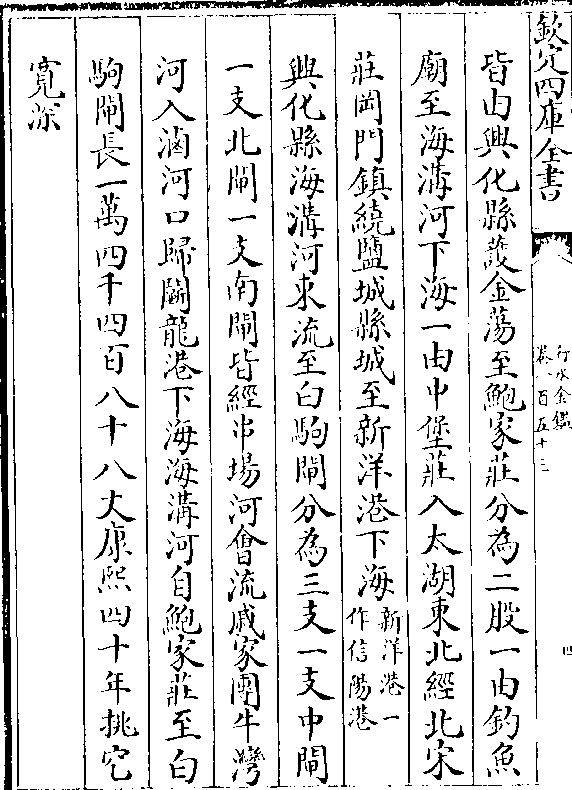 欽定四庫全書
行水金鑑
卷一百五十三
四
皆由興化縣䕶金蕩至鮑家莊分為二股一由釣魚
廟至海溝河下海一由中堡莊入太湖東北經北宋
莊岡門鎮繞鹽城縣城至新洋港下海新洋港一
作信陽港
興化縣海溝河東流至白駒閘分為三支一支中閘
一支北閘一支南閘皆經串場河會流戚家團牛灣
河入滷河口歸鬬龍港下海海溝河自鮑家莊至白
駒閘長一萬四千四百八十八丈康熙四十年挑穵
寛深